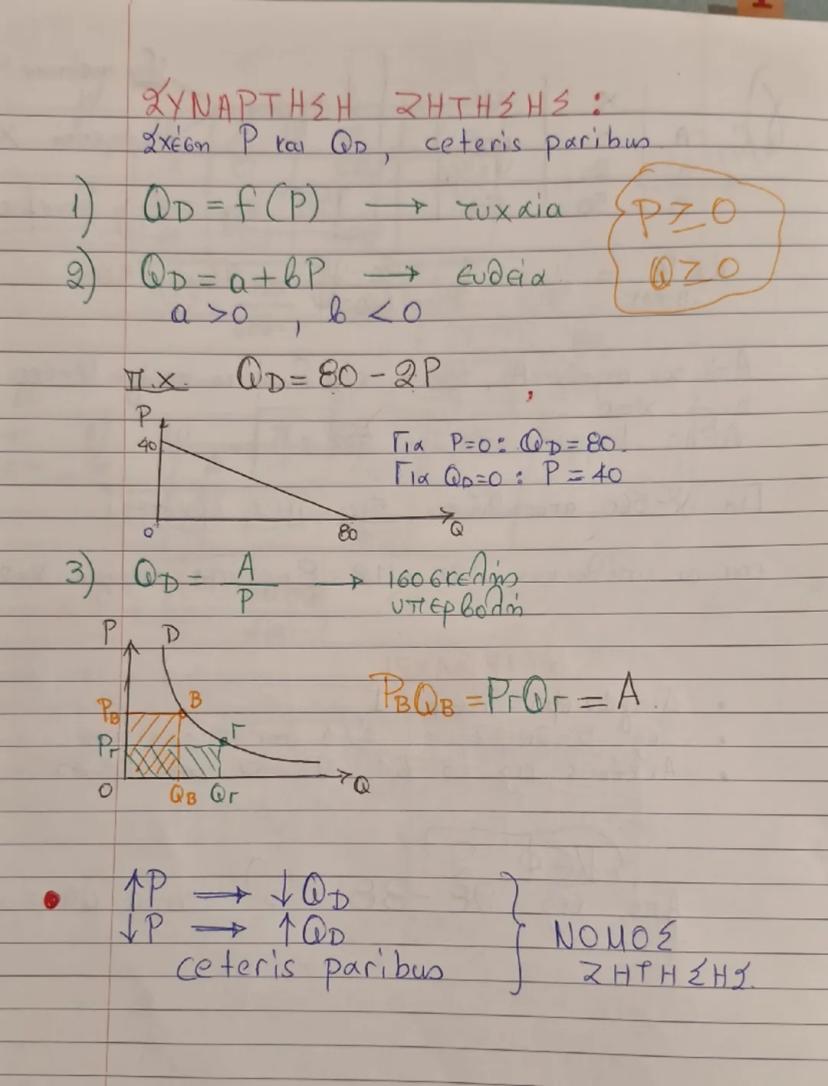 ΣΥΝΑΡΤΗΣΗ ΖΗΤΗΣΗΣ :
Σχέση P και QD, ceteris paribus
1) QD = f(P) → τυχαία
P ≥ 0
2) QD = a + bP → ευθεία
Q ≥ 0
a > 0 , b < 0
π.χ. QD = 80 - 2P
P
40
Για P=0 : QD = 80.
Για QD=0 : P = 40
0 80 Q
3) QD = A/P → ισοσκελής
υπερβολή
P D
B
PB
PBQB = PΓQΓ = A.
PΓ Γ
O QB QΓ Q
↑P → ↓QD
↓P → ↑QD
ΝΟΜΟΣ
ceteris paribus
ΖΗΤΗΣΗΣ.